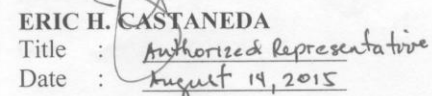 ERIC H. CASTANEDA
Title : Authorized Representative
Date : August 14, 2015